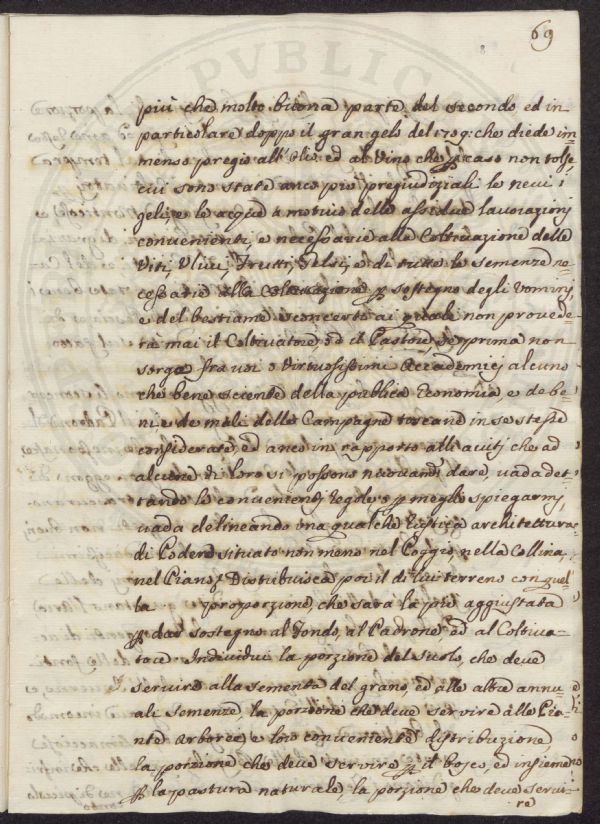 69
più che molto buona parte del secondo ed in
particolare doppo il gran gelo del 1709: che diede im=
menso pregio all'Olio, ed al Vino che p caso non tolse
cui sono state anco più pregiudiziali le nevi i
geli, e le acque a motivo delle assidue lavorazioni
convenienti, e necessarie alla Coltivazione delle
Viti, Ulivi, Frutti, Gelsi, e di tutte le semenze ne=
cessarie alla p sostegno degli Uomini,
e del bestiame sconcerto ai quale non provede=
rà mai il Coltivatore, ed il Pastore, se prima non
sorge fra voi o Virtuosissimi Accademici alcuno
che bene sciente della publica Economia e de be=
ni, e de mali delle Campagne toscane in se stesse
considerate, ed anco in rapporto alli aiuti che ad
alcune di loro si possono dare, vada det=
tando le convenienti regole, o p meglio spiegarmi,
vada delineando una qualche rustica architettura
di Podere situato non meno nel Poggio, nella Collina,
nel Piano, Distribuisca poi il di lui terreno con quel=
la proporzione, che sarà la più aggiustata
p dar sostegno al Fondo, al Padrone ed al Coltiva=
tore Individui la porzione del suolo, che deve
servire alla sementa del grano, ed alle altre annu=
ali semenze, la porzione che deve servire alle Pian=
te arboree, e loro conveniente distribuzione,
la porzione che deve servire p il bosco, ed insieme
p la pastura naturale, la porzione che deve servi=
re
PVBLIC